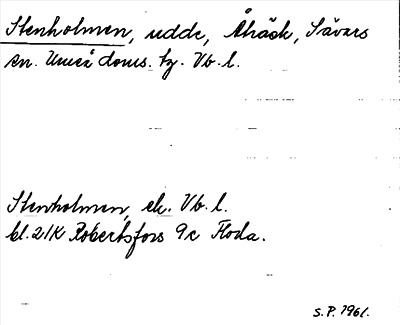 Stenholmen, udde, Åhäsk, Sävars
sn. Umeå doms. tg. Vb. l.
Stenholmen, ek. Vb. l.
bl. 21K Robertsfors 9c Floda.
S.P. 1961.